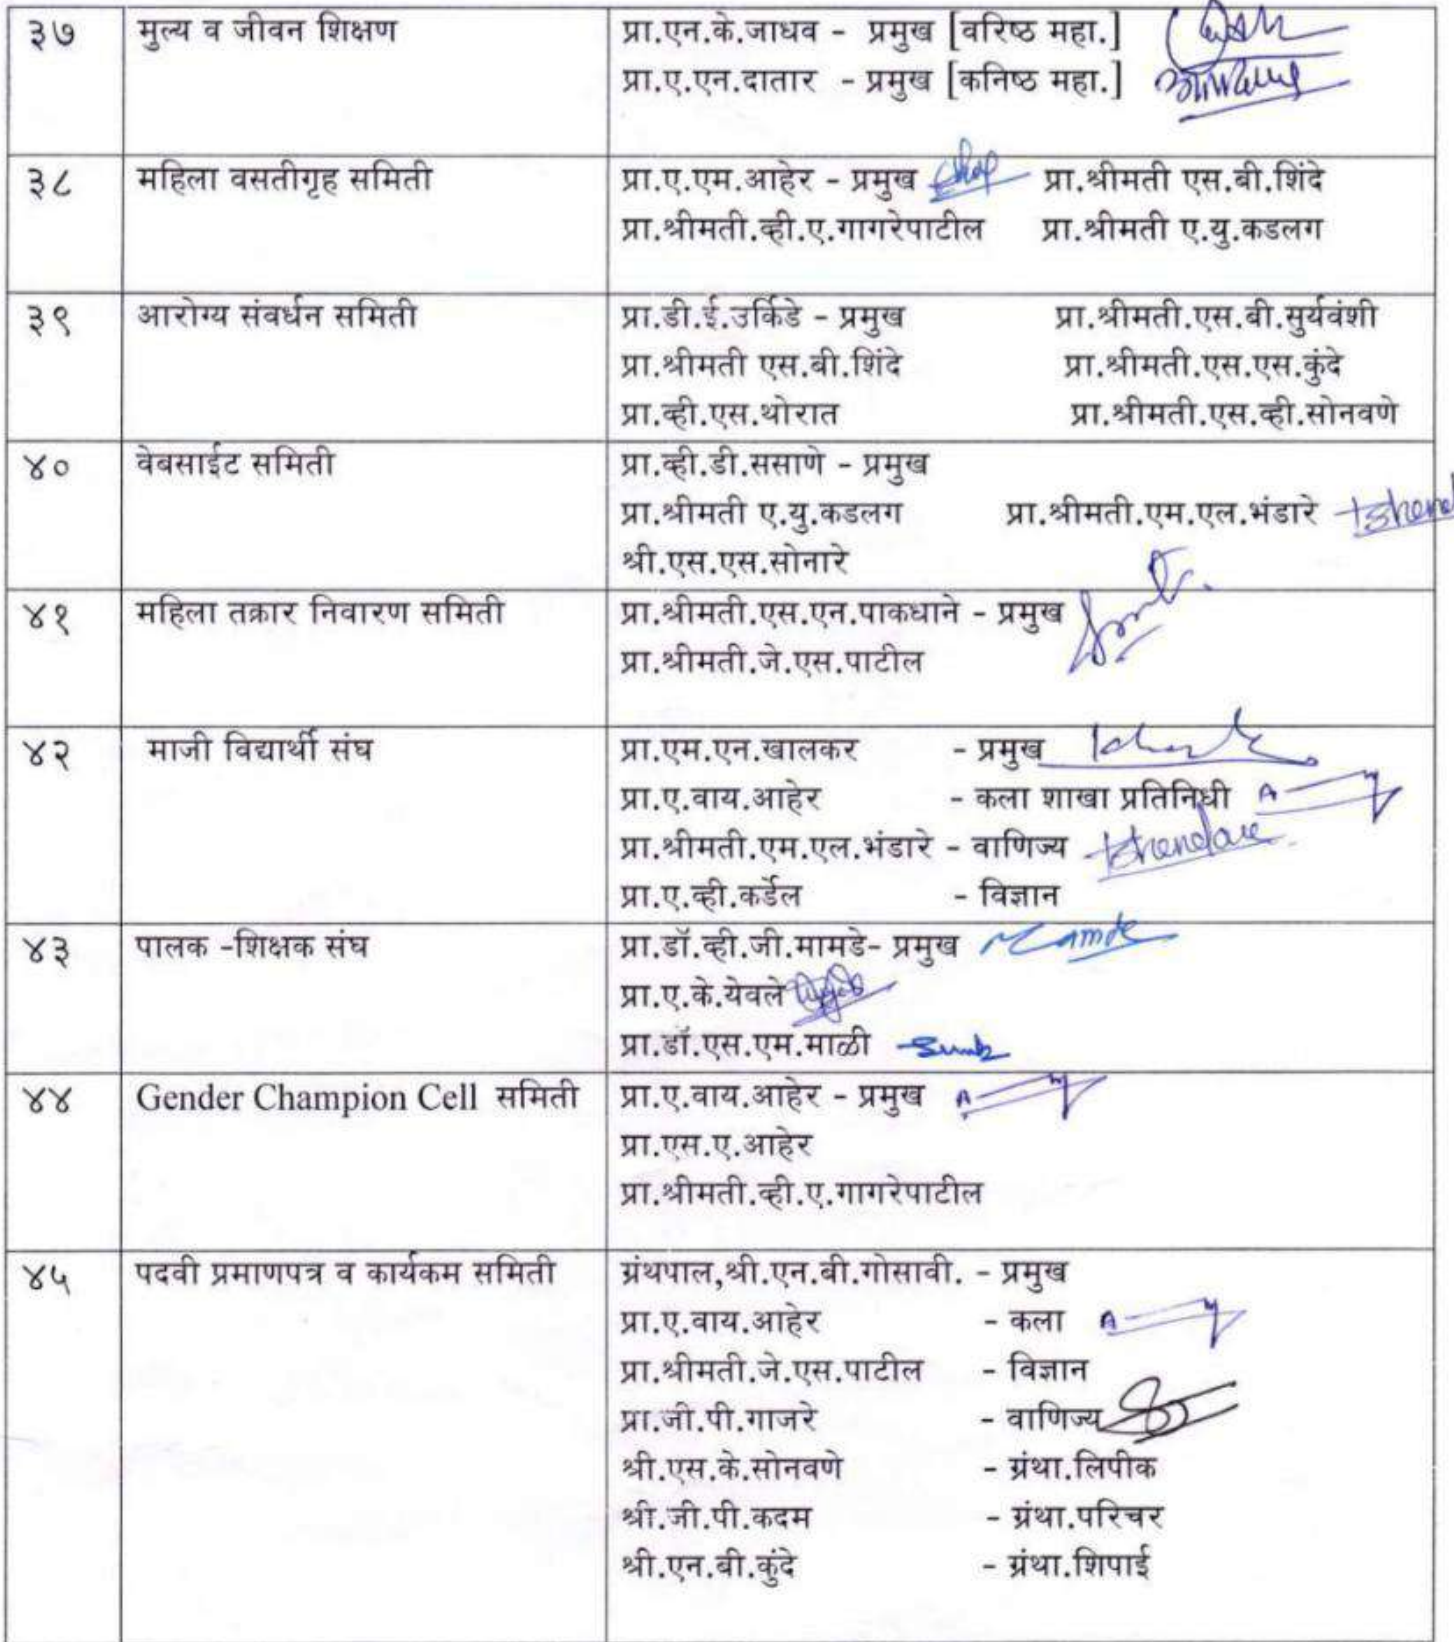 ३७ मुल्य व जीवन शिक्षण प्रा.एन.के.जाधव - प्रमुख [वरिष्ठ महा.]
प्रा.ए.एन.दातार - प्रमुख [कनिष्ठ महा.]
३८ महिला वसतीगृह समिती प्रा.ए.एम.आहेर - प्रमुख प्रा.श्रीमती एस.बी.शिंदे
प्रा.श्रीमती.व्ही.ए.गागरेपाटील प्रा.श्रीमती ए.यु.कडलग
३९ आरोग्य संवर्धन समिती प्रा.डी.ई.उर्किडे - प्रमुख प्रा.श्रीमती.एस.बी.सुर्यवंशी
प्रा.श्रीमती एस.बी.शिंदे प्रा.श्रीमती.एस.एस.कुंदे
प्रा.व्ही.एस.थोरात प्रा.श्रीमती.एस.व्ही.सोनवणे
४० वेबसाईट समिती प्रा.व्ही.डी.ससाणे - प्रमुख
प्रा.श्रीमती ए.यु.कडलग प्रा.श्रीमती.एम.एल.भंडारे
श्री.एस.एस.सोनारे
४१ महिला तक्रार निवारण समिती प्रा.श्रीमती.एस.एन.पाकधाने - प्रमुख
प्रा.श्रीमती.जे.एस.पाटील
४२ माजी विद्यार्थी संघ प्रा.एम.एन.खालकर - प्रमुख
प्रा.ए.वाय.आहेर - कला शाखा प्रतिनिधी
प्रा.श्रीमती.एम.एल.भंडारे - वाणिज्य Bhandare
प्रा.ए.व्ही.कर्डेल - विज्ञान
४३ पालक -शिक्षक संघ प्रा.डॉ.व्ही.जी.मामडे- प्रमुख
प्रा.ए.के.येवले
प्रा.डॉ.एस.एम.माळी
४४ Gender Champion Cell समिती प्रा.ए.वाय.आहेर - प्रमुख
प्रा.एस.ए.आहेर
प्रा.श्रीमती.व्ही.ए.गागरेपाटील
४५ पदवी प्रमाणपत्र व कार्यकम समिती ग्रंथपाल,श्री.एन.बी.गोसावी. - प्रमुख
प्रा.ए.वाय.आहेर - कला
प्रा.श्रीमती.जे.एस.पाटील - विज्ञान
प्रा.जी.पी.गाजरे - वाणिज्य
श्री.एस.के.सोनवणे - ग्रंथा.लिपीक
श्री.जी.पी.कदम - ग्रंथा.परिचर
श्री.एन.बी.कुंदे - ग्रंथा.शिपाई